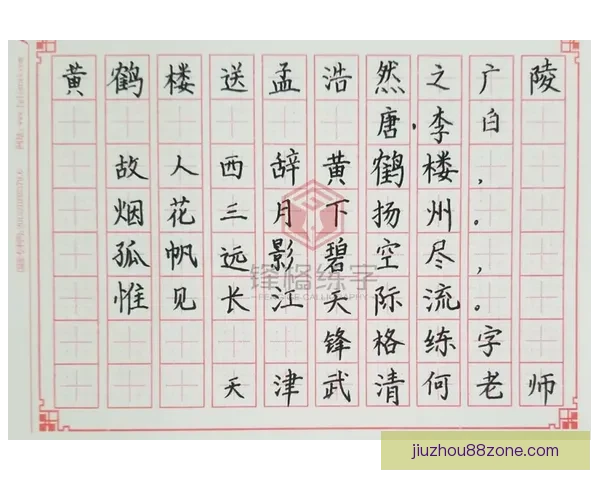 黄鹤楼送孟浩然之广陵
唐·李白
故人西辞黄鹤楼，
烟花三月下扬州。
孤帆远影碧空尽，
惟见长江天际流。
锋格练字
天津武清何老师
锋格练字
jiuzhou88zone.com